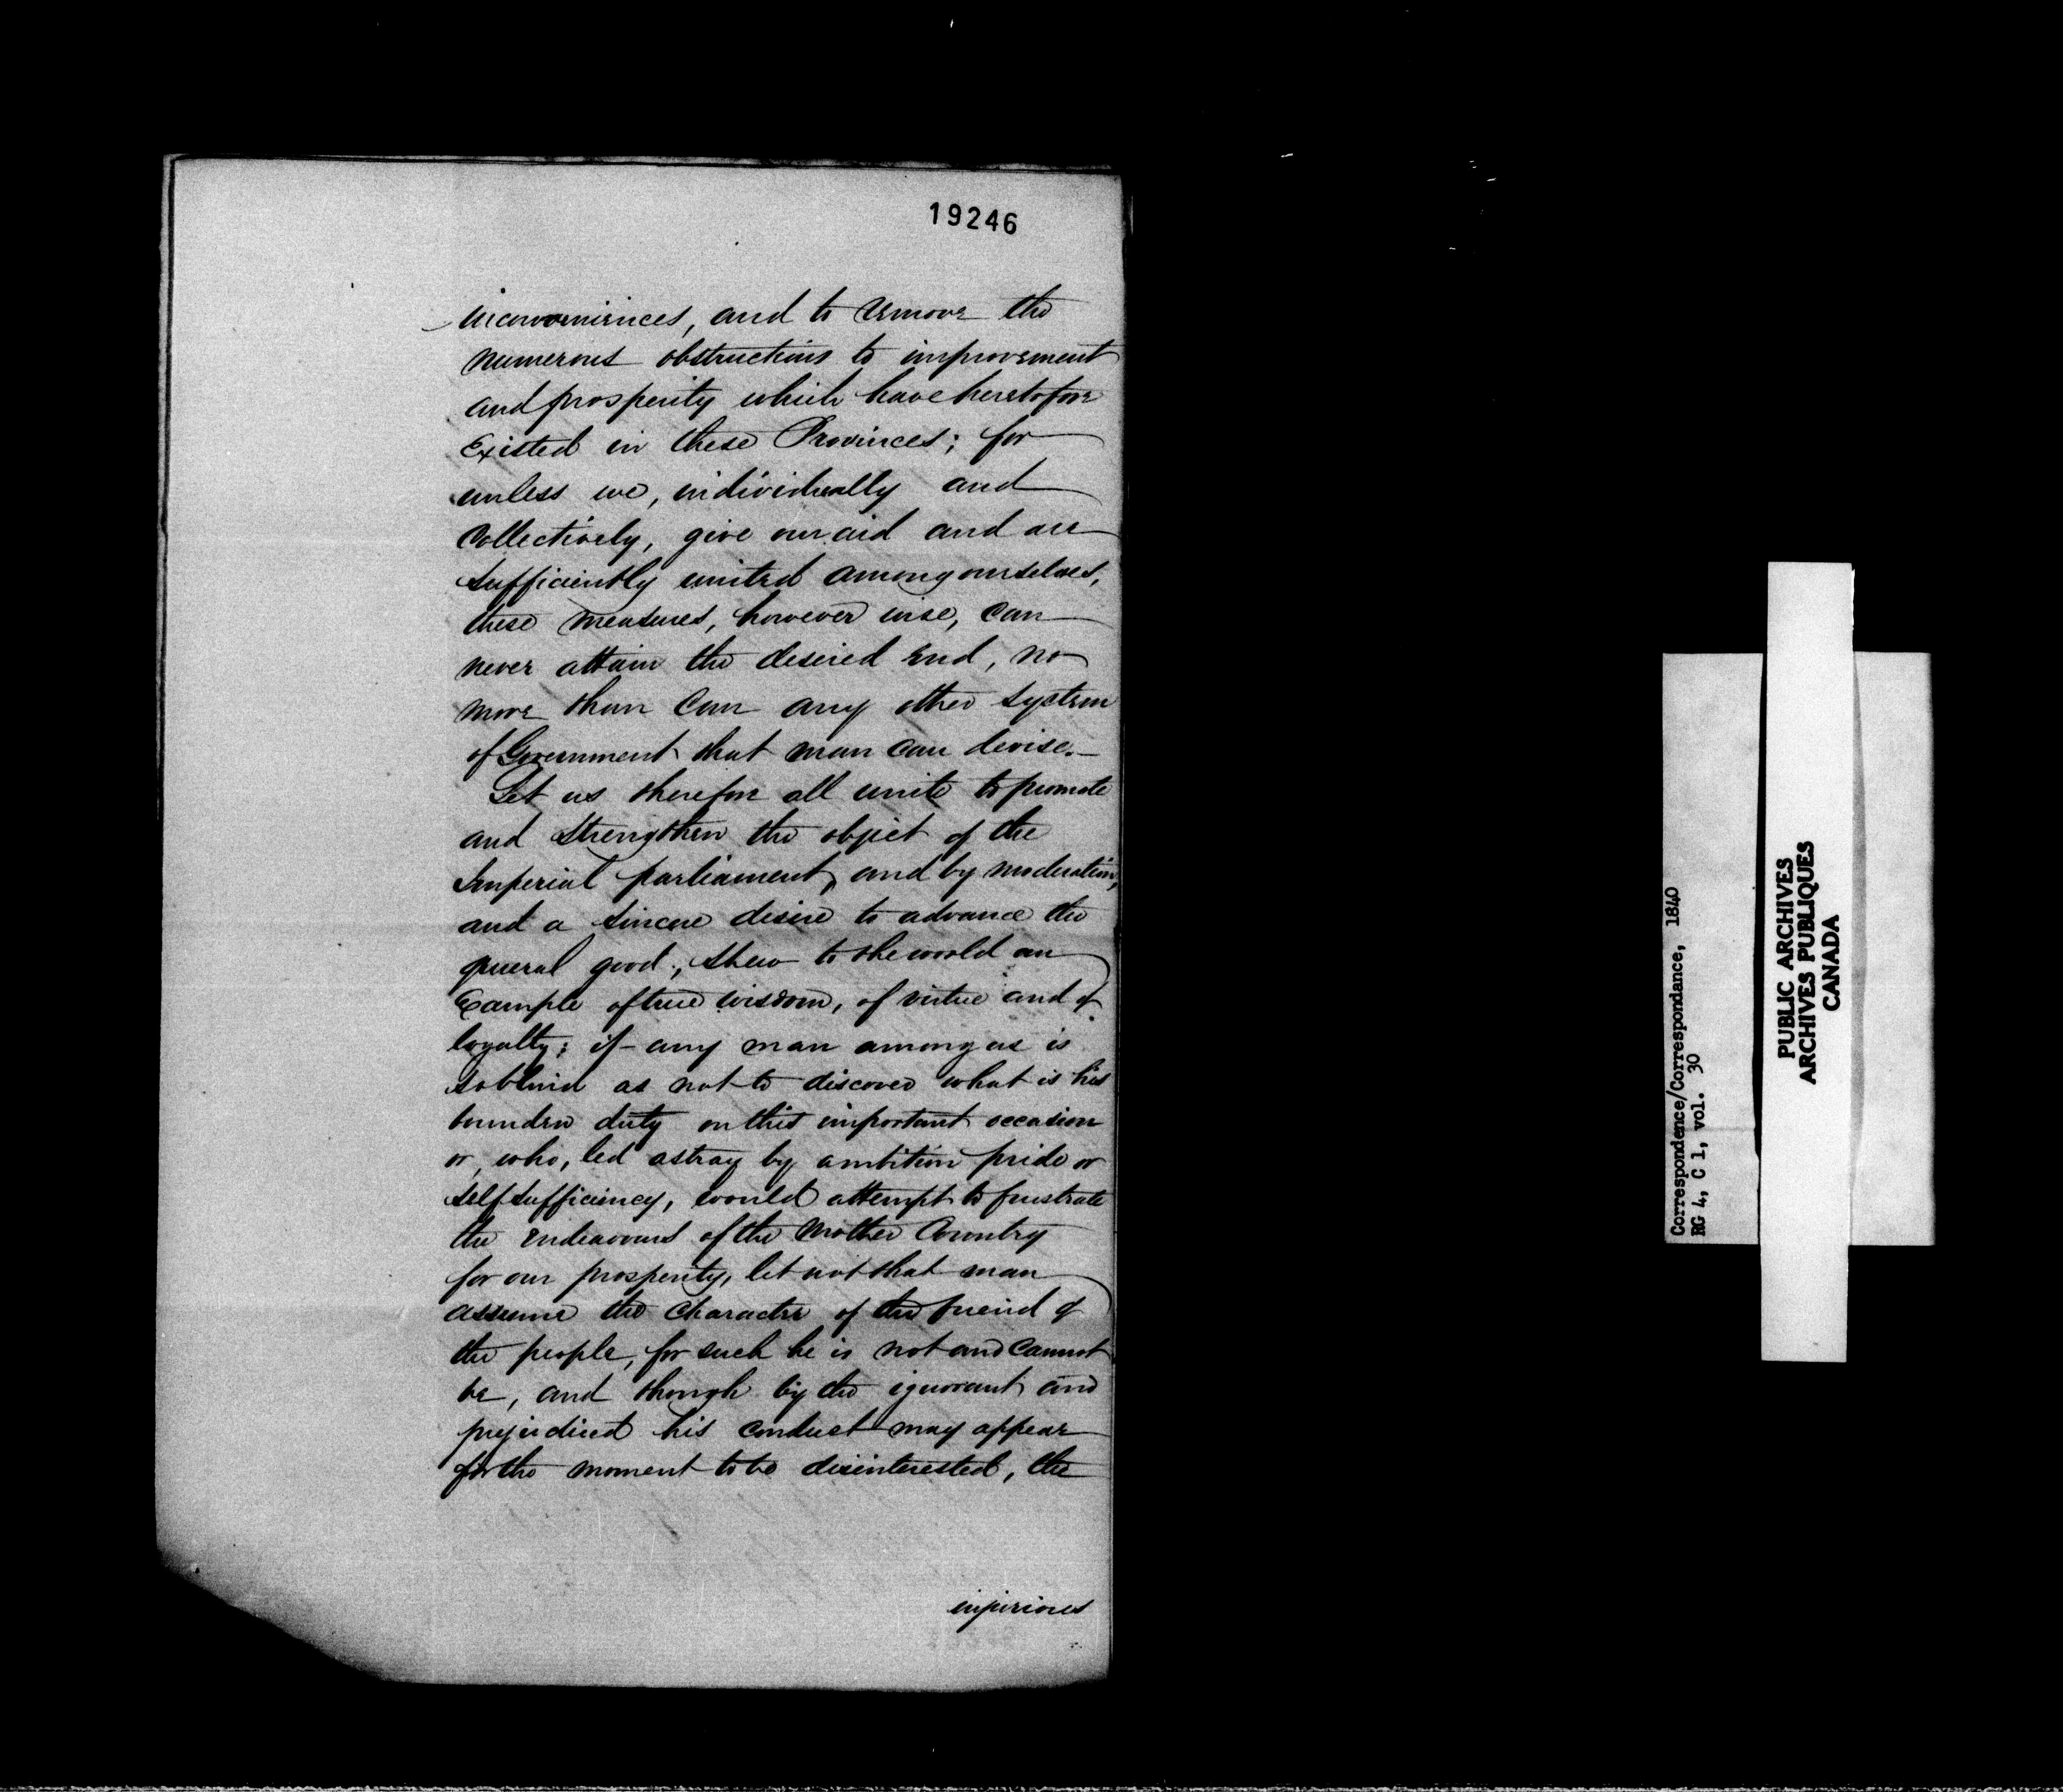 19246
inconveniences, and to remove the
numerous obstructions to improvement
and prosperity which have heretofore
existed in these Provinces; for
unless we, individually and
collectively, give our aid and are
sufficiently united among ourselves,
these measures, however wise, can
never attain the desired end, no
more than can any other system
of Government that man can devise.—
Let us therefore all unite to promote
and strengthen the object of the
Imperial parliament, and by moderation,
and a sincere desire to advance the
general good; shew to the world an
example of true wisdom, of virtue and of
loyalty; if any man among us is
so blind as not to discover what is his
bounden duty on this important occasion
or, who, led astray by ambition pride or
self sufficiency, would attempt to frustrate
the endeavours of the Mother Country
for our prosperity, let not that man
assume the character of the friend of
the people, for such he is not and cannot
be, and though by the ignorant and
prejudiced his conduct may appear
for the moment to be disinterested, the
injurious
Correspondence/Correspondance, 1840
RG 4, C 1, vol. 30
PUBLIC ARCHIVES
ARCHIVES PUBLIQUES
CANADA